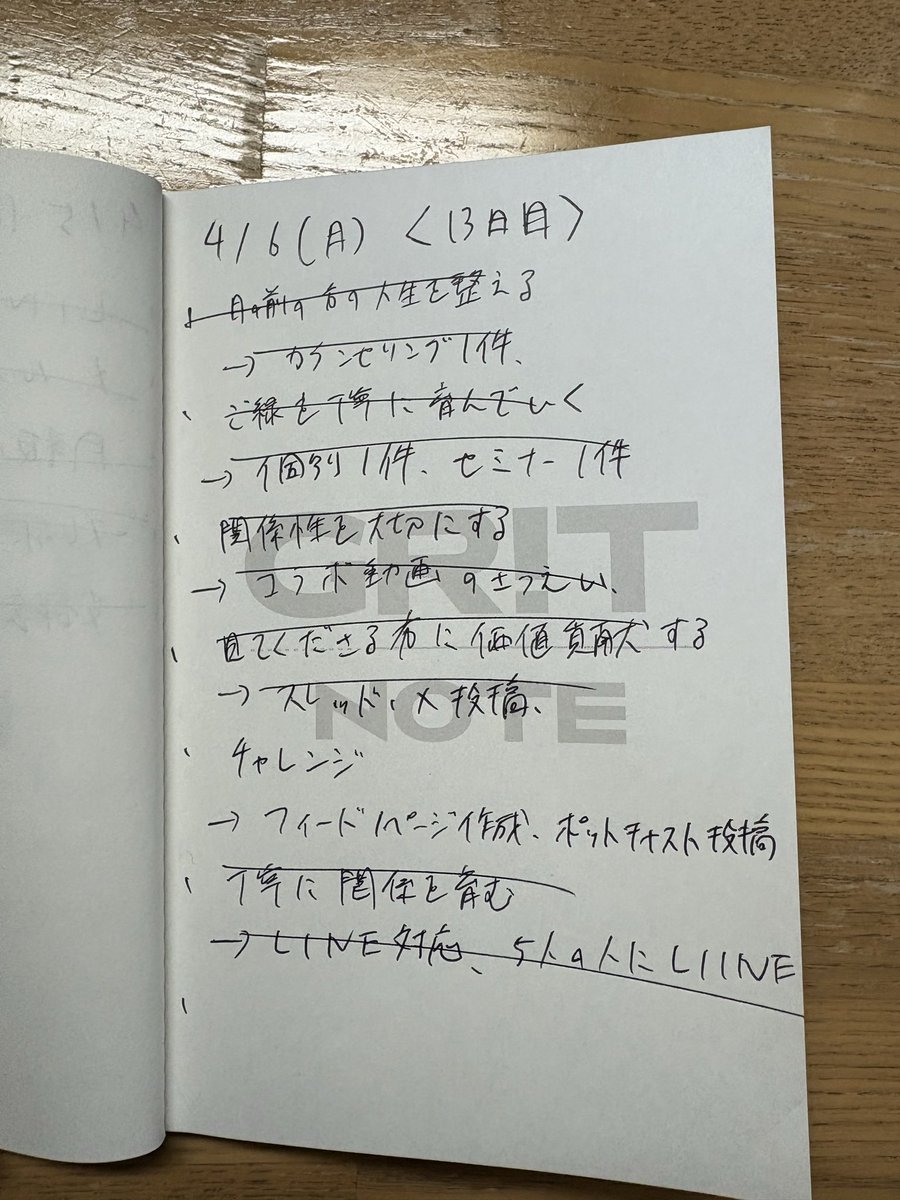 4/6(月) <13日目>
・目の前の方の人生を整える
→カウンセリング1件、
・ご縁を丁寧に育んでいく
→個別1件、セミナー1件
・関係性を大切にする
→コラボ動画のさつえい、
・見てくださる方に価値貢献する
→スレッド、X投稿、
・チャレンジ
→フィード1ページ作成、ポットキャスト投稿
・丁寧に関係を育む
→LINE対応、5人の人にLIINE
・
GRIT
NOTE
4/5